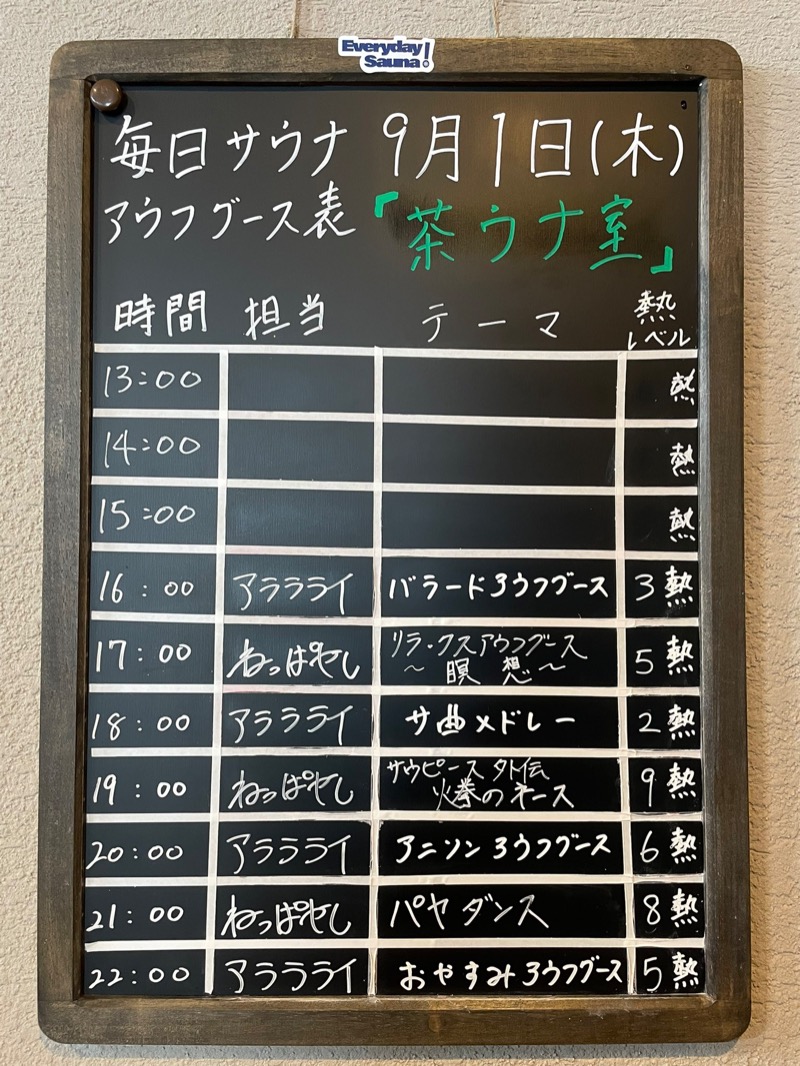 Everyday
Sauna!
毎日サウナ 9月1日(木)
アウフグース表「茶ウナ室」
時間 担当 テーマ 熱レベル
13:00 熱
14:00 熱
15:00 熱
16:00 アラララライ バラードアウフグース 3熱
17:00 ねっぱやし リラックスアウフグース
～瞑想～ 5熱
18:00 アララライ サ曲メドレー 2熱
19:00 ねっぱやし サウピース外伝
火拳のネース 9熱
20:00 アララライ アニソンアウフグース 6熱
21:00 ねっぱやし パヤダンス 8熱
22:00 アララライ おやすみアウフグース 5熱